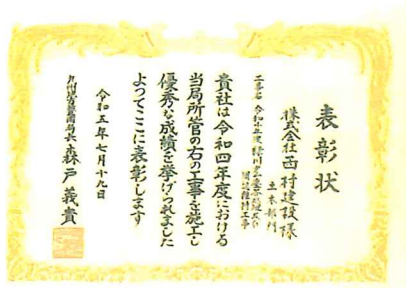 表彰状
株式会社西村建設 殿
土木部門
工事名
貴社は令和四年度における
当局所管の右の工事を施工し
優秀な成績を挙げられました
よってここに表彰します
令和五年七月十九日
九州
局長 森戸義貴